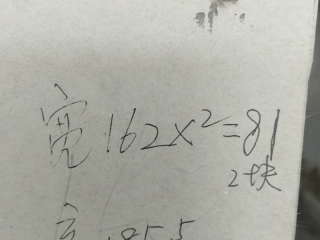 宽162x2=81
2块
高 85.5